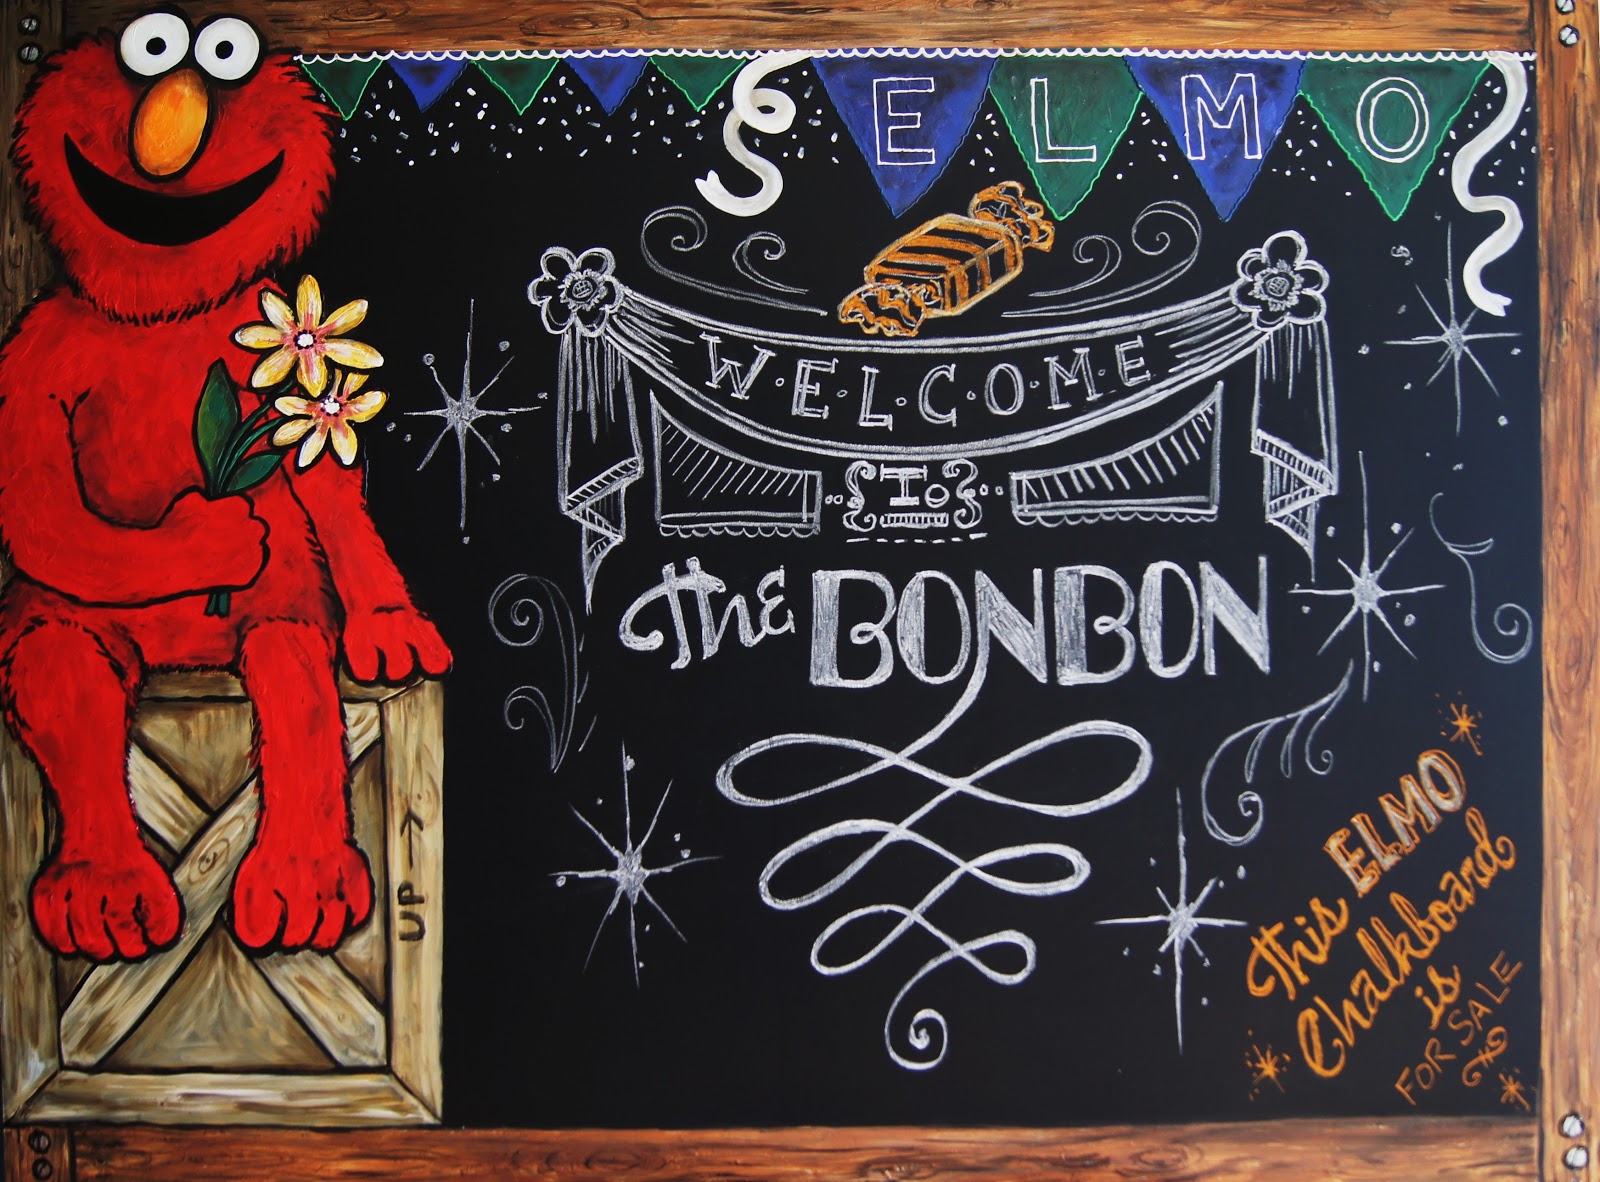 ELMO
W·E·L·C·O·M·E
To
The BONBON
UP
This ELMO
Chalkboard
is
FOR SALE